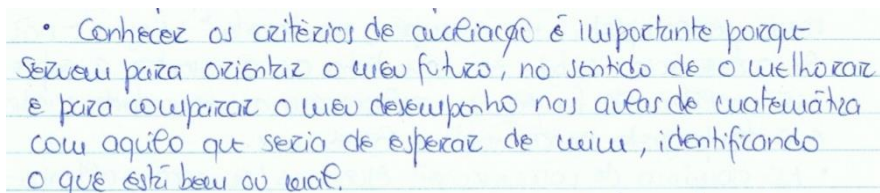 • Conhecer os critérios de avaliação é importante porque
servem para orientar o meu futuro, no sentido de o melhorar
e para comparar o meu desempenho nas aulas de matemática
com aquilo que seria de esperar de mim, identificando
o que está bem ou mal.